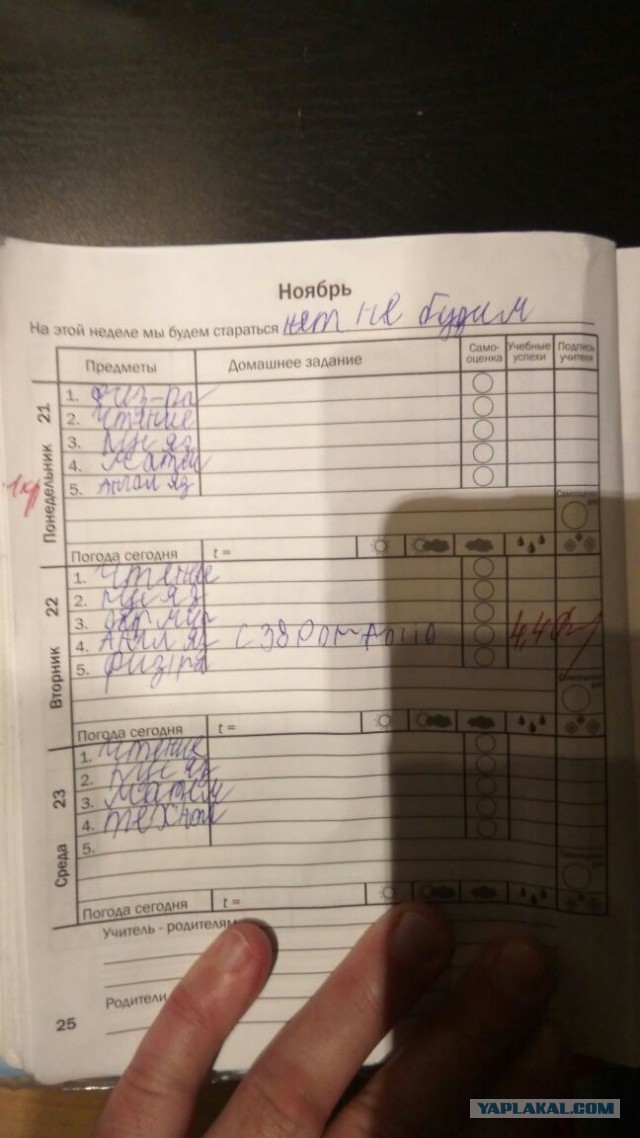 Ноябрь
На этой неделе мы будем стараться нет не будим
Предметы Домашнее задание Само-оценка Учебные успехи Подпись учителя
Понедельник 21
1. физ-ра
2. Чтение
3. Рус яз
4. Матем
5. Англ яз
Самооценка дня
Погода сегодня t =
Вторник 22
1. Чтение
2. Рус яз
3. окр мир
4. Англ яз с 38 4,4
5. физ-ра
Самооценка дня
Погода сегодня t =
Среда 23
1. Чтение
2. Рус яз
3. Матем
4. Технол
5.
Самооценка дня
Погода сегодня t =
Учитель - родителям
Родители
25
YAPLAKAL.COM